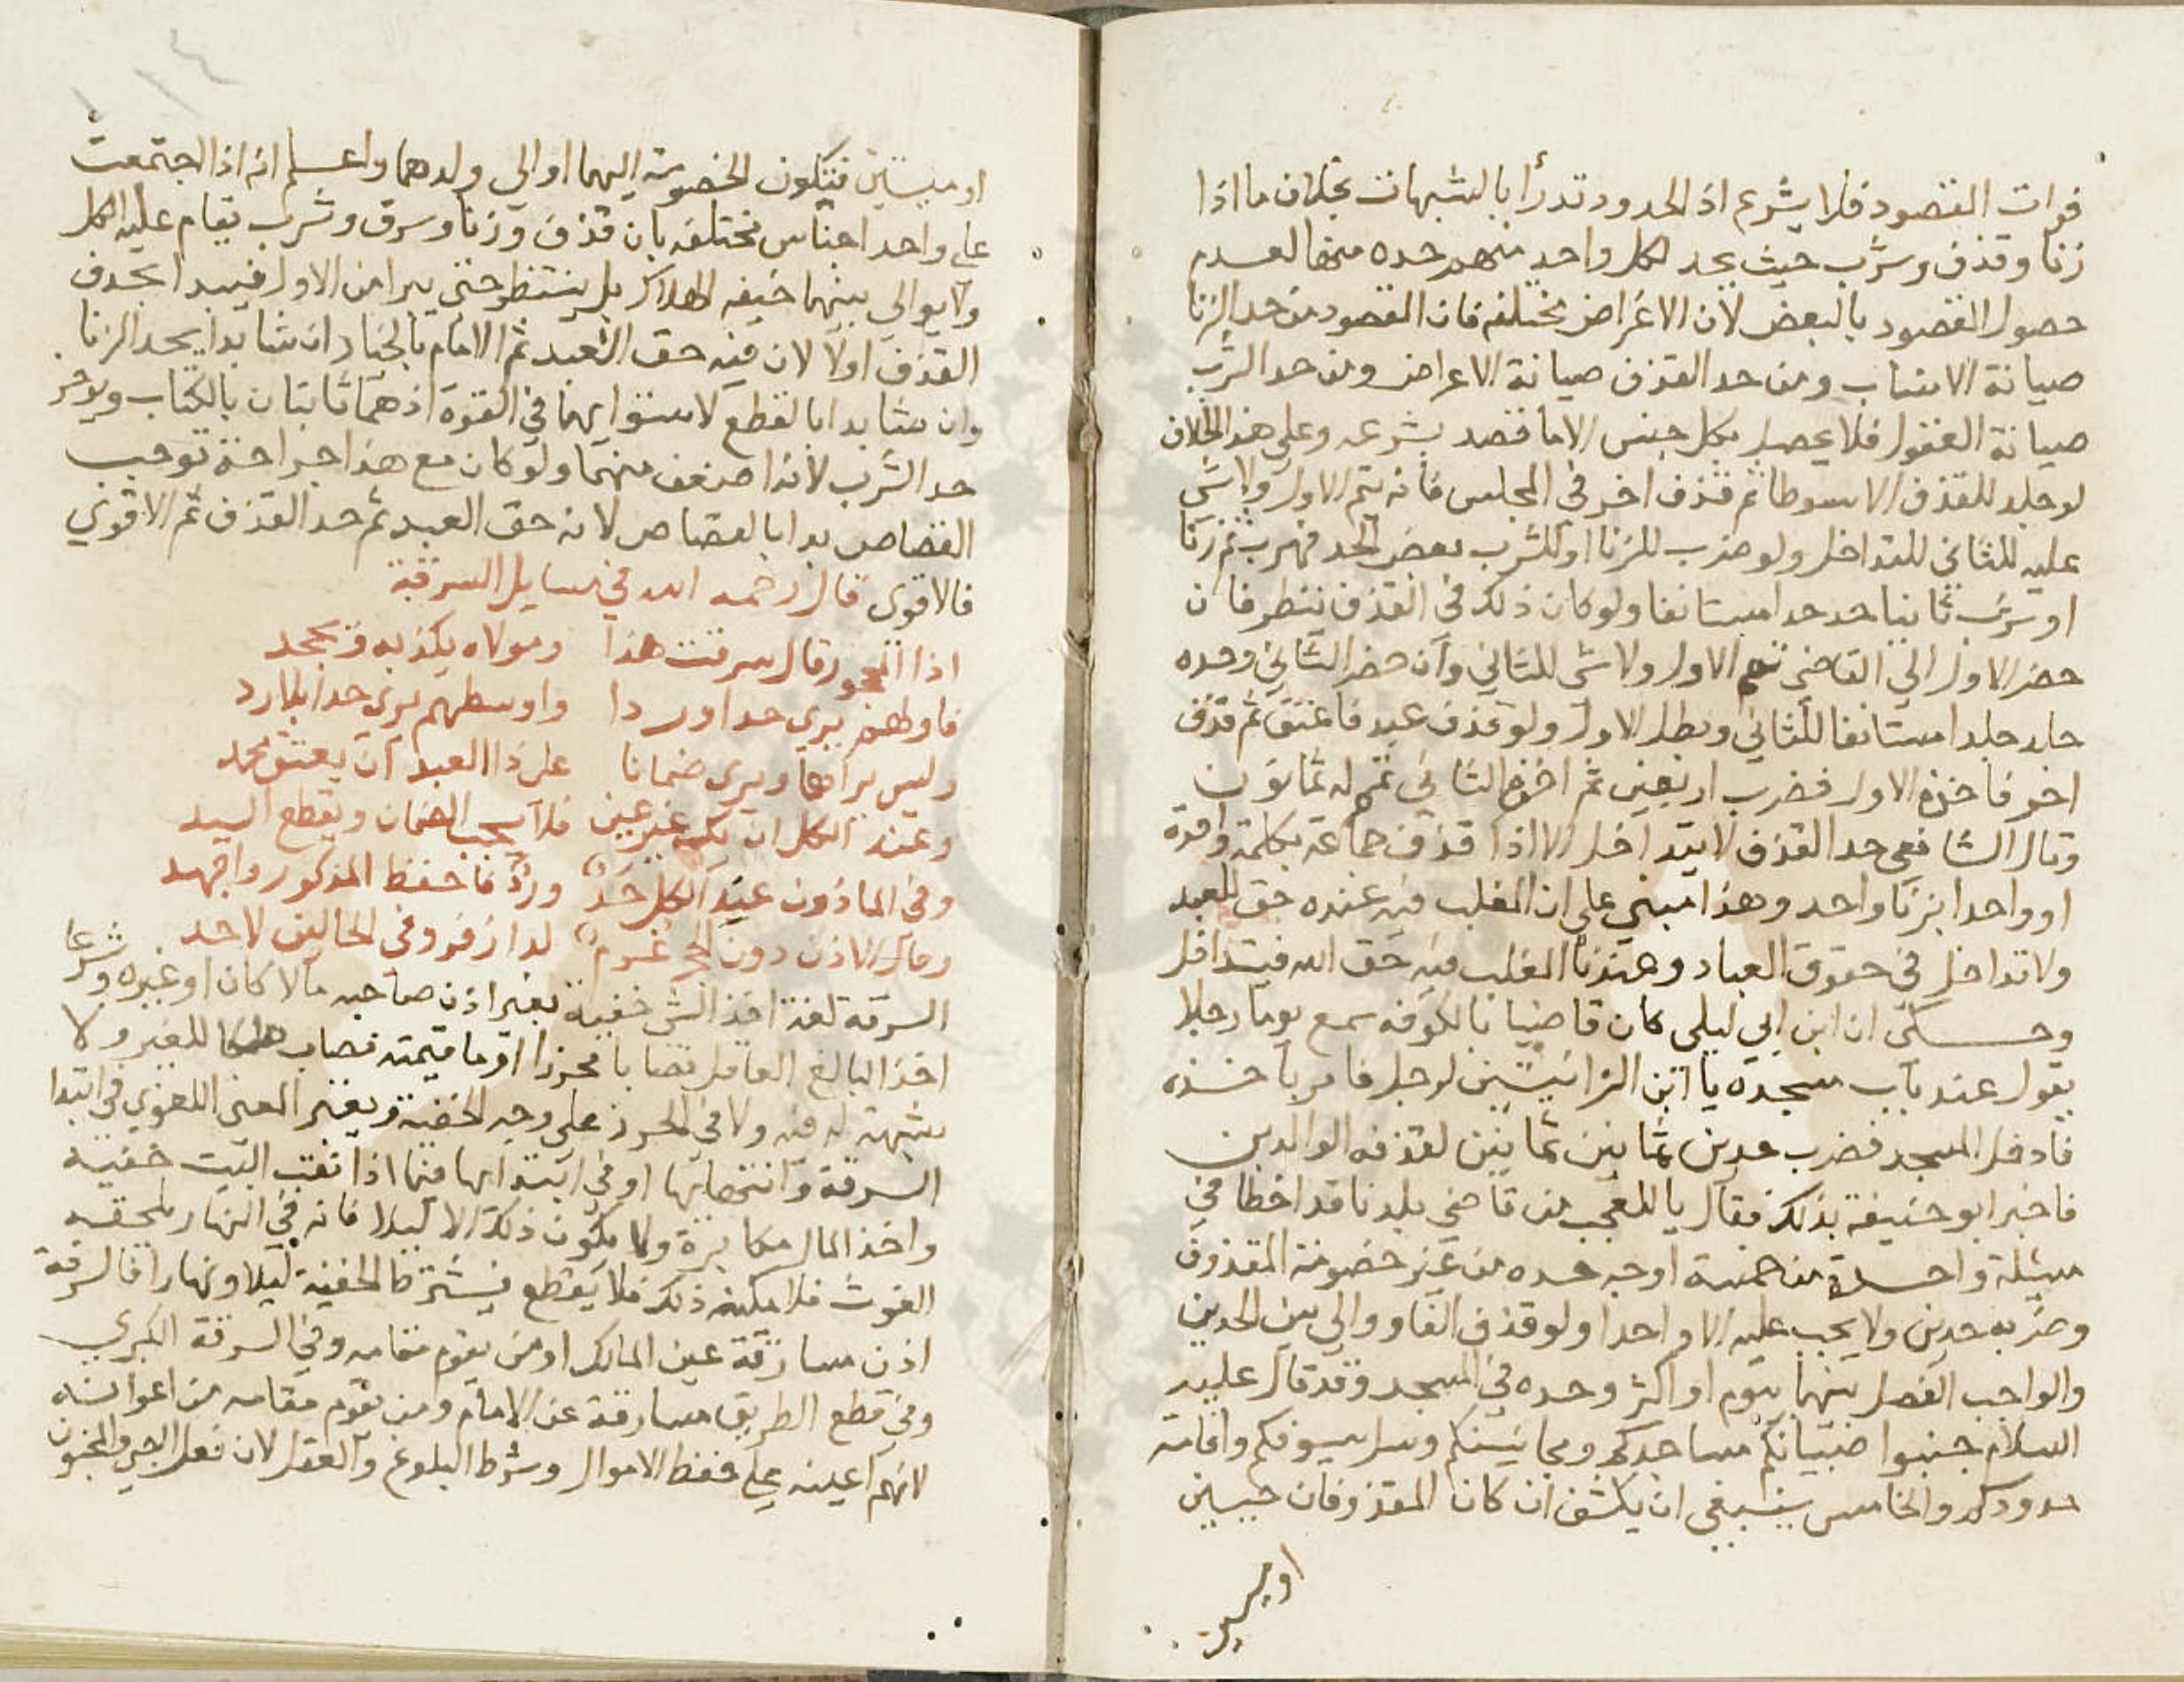 فوات المقصود فلا يشرع اذ الحدود تدرأ بالشبهات بخلاف ما اذا
زنا وقذف وشرب حيث يحد لكل واحد منهم حده منها لعدم
حصول المقصود بالبعض لان الاغراض مختلفه فان المقصود من حد الزنا
صيانة الانساب ومن حد القذف صيانة الاعراض ومن حد الشرب
صيانة العقول فلا يحصل بكل جنس الا ما قصد بشرعه وعلي هذا الخلاف
لو جلد للقذف الا سوطا ثم قذف اخر في المجلس فانه يتم الاول ولا شي
عليه للثاني للتداخل ولو ضرب للزنا او للشرب بعض الحد فهرب ثم زنا
او شرب ثانيا حد حدا مستانفا ولو كان ذلك في القذف ننظر فان
حضر الاول الي القاضي تمم الاول ولا شي للثاني وان حضر الثاني وحده
جلد جلدا مستانفا للثاني وبطل الاول ولو قذف عبد فاعتق ثم قذف
اخر فاخذه الاول فضرب اربعين ثم اخذه الثاني تمم له ثمانون
وقال الشافعي حد القذف لا يتداخل الا اذا قذف جماعة بكلمة واحدة
او واحدا بزنا واحد وهذا مبني علي ان المغلب فيه عنده حق العبد
ولا تداخل في حقوق العباد وعندنا المغلب فيه حق الله فيتداخل
وحكى ان ابن ابي ليلى كان قاضيا بالكوفه سمع يوما رجلا
يقول عند باب مسجده يا ابن الزانيين لرجل فامر باخذه
فادخل المسجد فضرب حدين ثمانين ثمانين لقذفه الوالدين
فاخبر ابو حنيفة بذلك فقال يا للعجب من قاضي بلدنا قد اخطا في
مسئلة واحدة من خمسة اوجه حده من غير خصومة المقذوف
وضربه حدين ولا يجب عليه الا واحدا ولو قذف الفا ووالي بين الحدين
والواجب الفصل بينهما بيوم او اكثر وحده في المسجد وقد قال عليه
السلام جنبوا صبيانكم مساجدكم ومجانينكم وسل سيوفكم واقامة
حدودكم والخامس ينبغي ان يكشف ان كان المقذوفان حيين
او ميتين
او ميتين فتكون الخصومة اليهما او الي ولدهما واعلم انه اذا اجتمعت
علي واحد اجناس مختلفه بان قذف وزنا وسرق وشرب يقام عليه الكل
ولا يوالي بينهما خيفه الهلاك بل ينتظر حتى يبرا من الاول فيبدا بحد
القذف اولا لان فيه حق العبد ثم الامام بالخيار ان شا بدا بحد الزنا
وان شا بدا بالقطع لاستوايهما في القوة اذ هما ثابتان بالكتاب ويوخر
حد الشرب لانه اضعف منهما ولو كان مع هذا جراحة توجب
القصاص بدا بالقصاص لانه حق العبد ثم حد القذف ثم الاقوي
فالاقوى قال رحمه الله في مسايل السرقة
اذا المحجور قال سرقت هذا ومولاه يكذبه ويجحد
فاولهم يرى حدا وردا واوسطهم يرى حدا بلا رد
وليس يراهما ويرى ضمانا على ذا العبد ان يعتق محمد
وعند الكل ان تكن غير عين فلا يجب الضمان ويقطع اليد
وفي الماذون عند الكل حد ورد فاحفظ المذكور واجهد
وقال الاذن دون الحجر غرم لدا زفر وفي الحالين لا حد
السرقة لغة اخذ الشي خفية بغير اذن صاحبه مالا كان او غيره وشرعا
اخذ البالغ العاقل نصابا محرزا او ما قيمته نصاب ملكا للغير ولا
شبهة له فيه ولا في الحرز على وجه الخفية ويعتبر المعنى اللغوي في ابتدا
السرقة وانتهايها او في ابتدايها فيما اذا نقب البيت خفية
واخذ المال مكابرة ولا يكون ذلك الا ليلا فانه في النهار يلحقه
الغوث فلا يمكنه ذلك فلا يقطع فيشترط الخفية ليلا ونهارا فالسرقة
اذن مسارقة عين المالك او من يقوم مقامه وفي السرقة الكبري
وفي قطع الطريق مسارقة عين الامام ومن يقوم مقامه من اعوانه
لانهم اعينه علي حفظ الاموال وشرط البلوغ والعقل لان فعل الصبي والمجنون